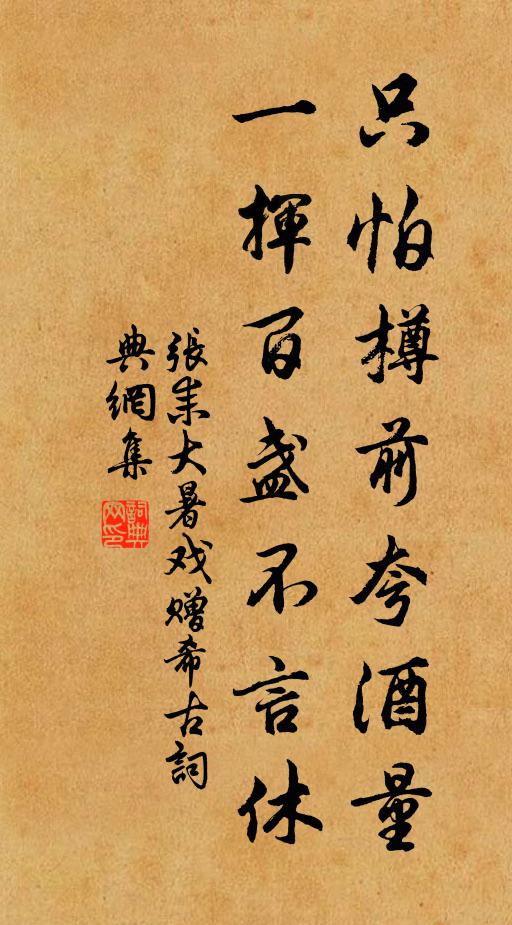 只怕樽前夸酒量
一揮百盞不言休
張耒大暑戏赠希古詞
典網集
詞典網印